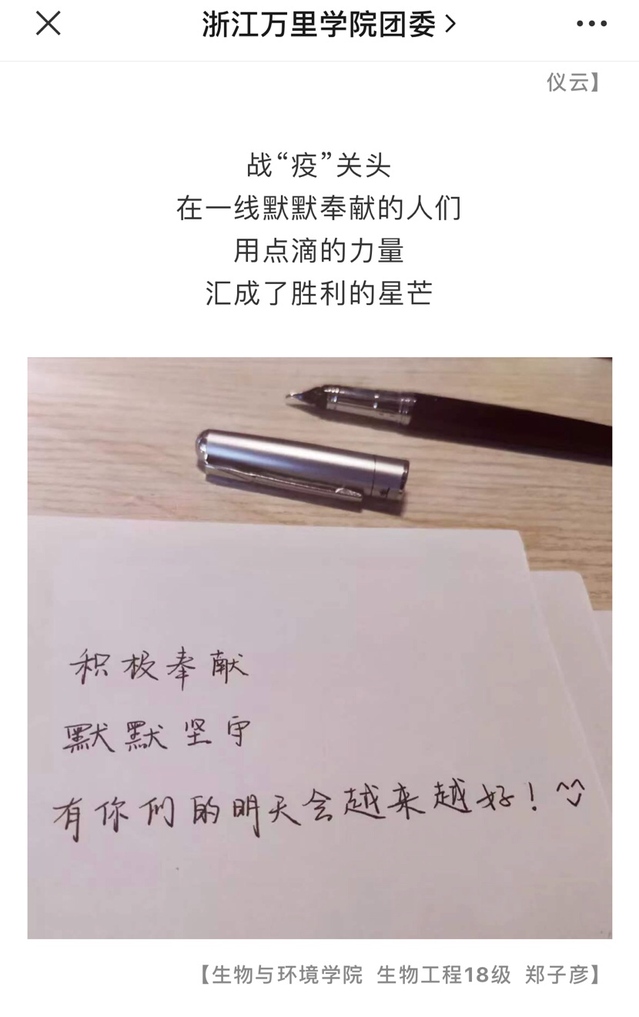 浙江万里学院团委
仪云】
战“疫”关头
在一线默默奉献的人们
用点滴的力量
汇成了胜利的星芒
积极奉献
默默坚守
有你们的明天会越来越好！^^
【生物与环境学院 生物工程18级 郑子彦】